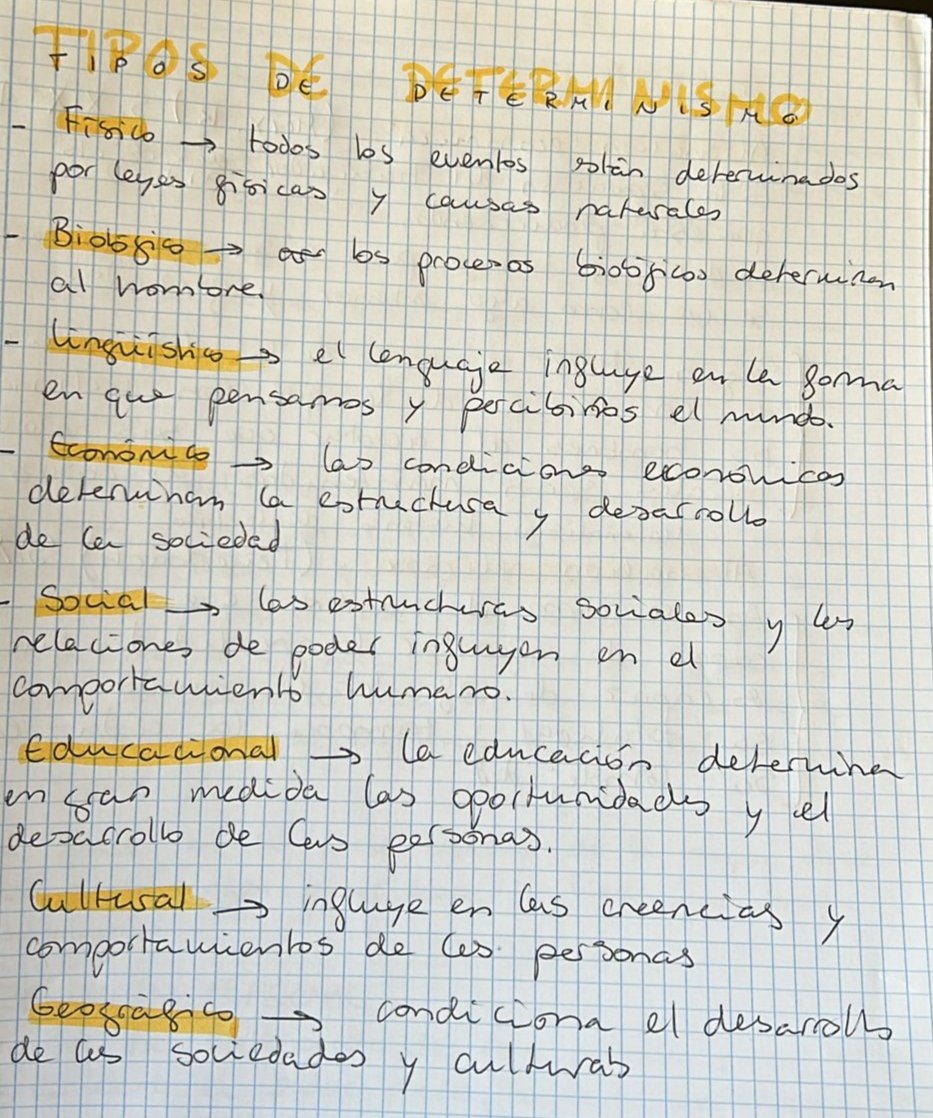 TIPOS DE DETERMINISMO
- Físico → todos los eventos están determinados
por leyes físicas y causas naturales
- Biológico → los procesos biológicos determinan
al hombre.
- Lingüístico → el lenguaje influye en la forma
en que pensamos y percibimos el mundo.
- Económico → las condiciones económicas
determinan la estructura y desarrollo
de la sociedad
- Social → las estructuras sociales y las
relaciones de poder influyen en el
comportamiento humano.
Educacional → la educación determina
en gran medida las oportunidades y el
desarrollo de las personas.
Cultural → influye en las creencias y
comportamientos de las personas
Geográfico → condiciona el desarrollo
de las sociedades y culturas